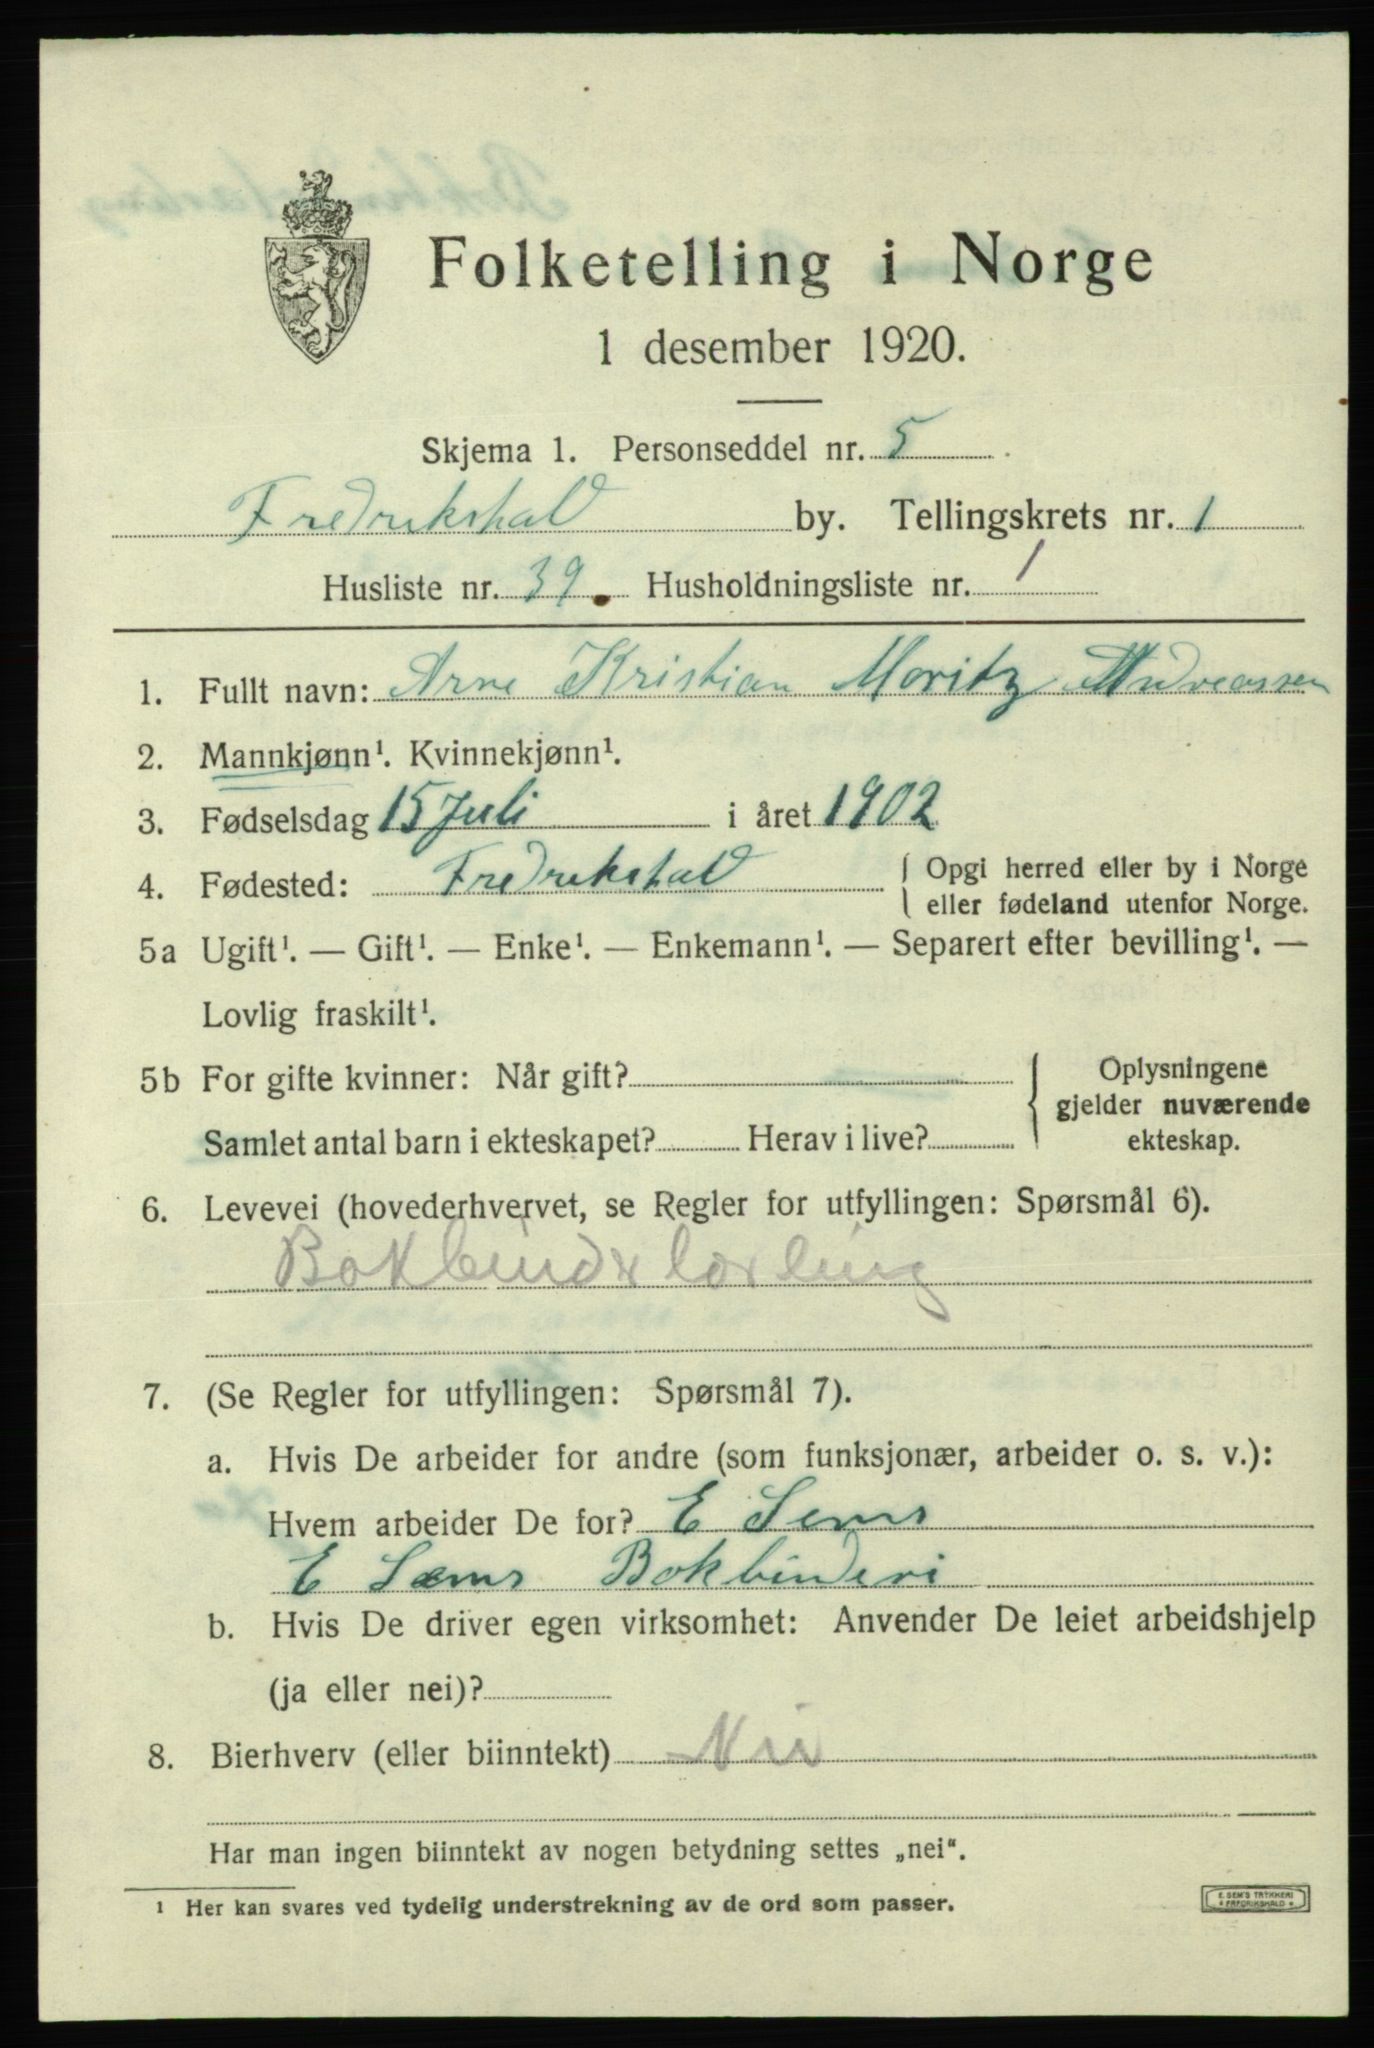 Folketelling i Norge
1 desember 1920.
Skjema 1. Personseddel nr. 5
Fredrikshald by. Tellingskrets nr. 1
Husliste nr. 39. Husholdningsliste nr. 1
1. Fullt navn: Arne Kristian Moritz Andreassen
2. Mannkjønn¹. Kvinnekjønn¹.
3. Fødselsdag 15 Juli i året 1902
4. Fødested: Fredrikshald { Opgi herred eller by i Norge
eller fødeland utenfor Norge.
5a Ugift¹. — Gift¹. — Enke¹. — Enkemann¹. — Separert efter bevilling¹. —
Lovlig fraskilt¹.
5b For gifte kvinner: Når gift?
Samlet antal barn i ekteskapet? Herav i live?
{ Oplysningene
gjelder nuværende
ekteskap.
6. Levevei (hovederhvervet, se Regler for utfyllingen: Spørsmål 6).
Bokbinderlærling
7. (Se Regler for utfyllingen: Spørsmål 7).
a. Hvis De arbeider for andre (som funksjonær, arbeider o. s. v.):
Hvem arbeider De for? E Sems
E Sæms Bokbinderi
b. Hvis De driver egen virksomhet: Anvender De leiet arbeidshjelp
(ja eller nei)?
8. Bierhverv (eller biinntekt) Nei
Har man ingen biinntekt av nogen betydning settes „nei“.
¹ Her kan svares ved tydelig understrekning av de ord som passer.
E. SEM'S TRYKKERI
* FREDRIKSHALD *